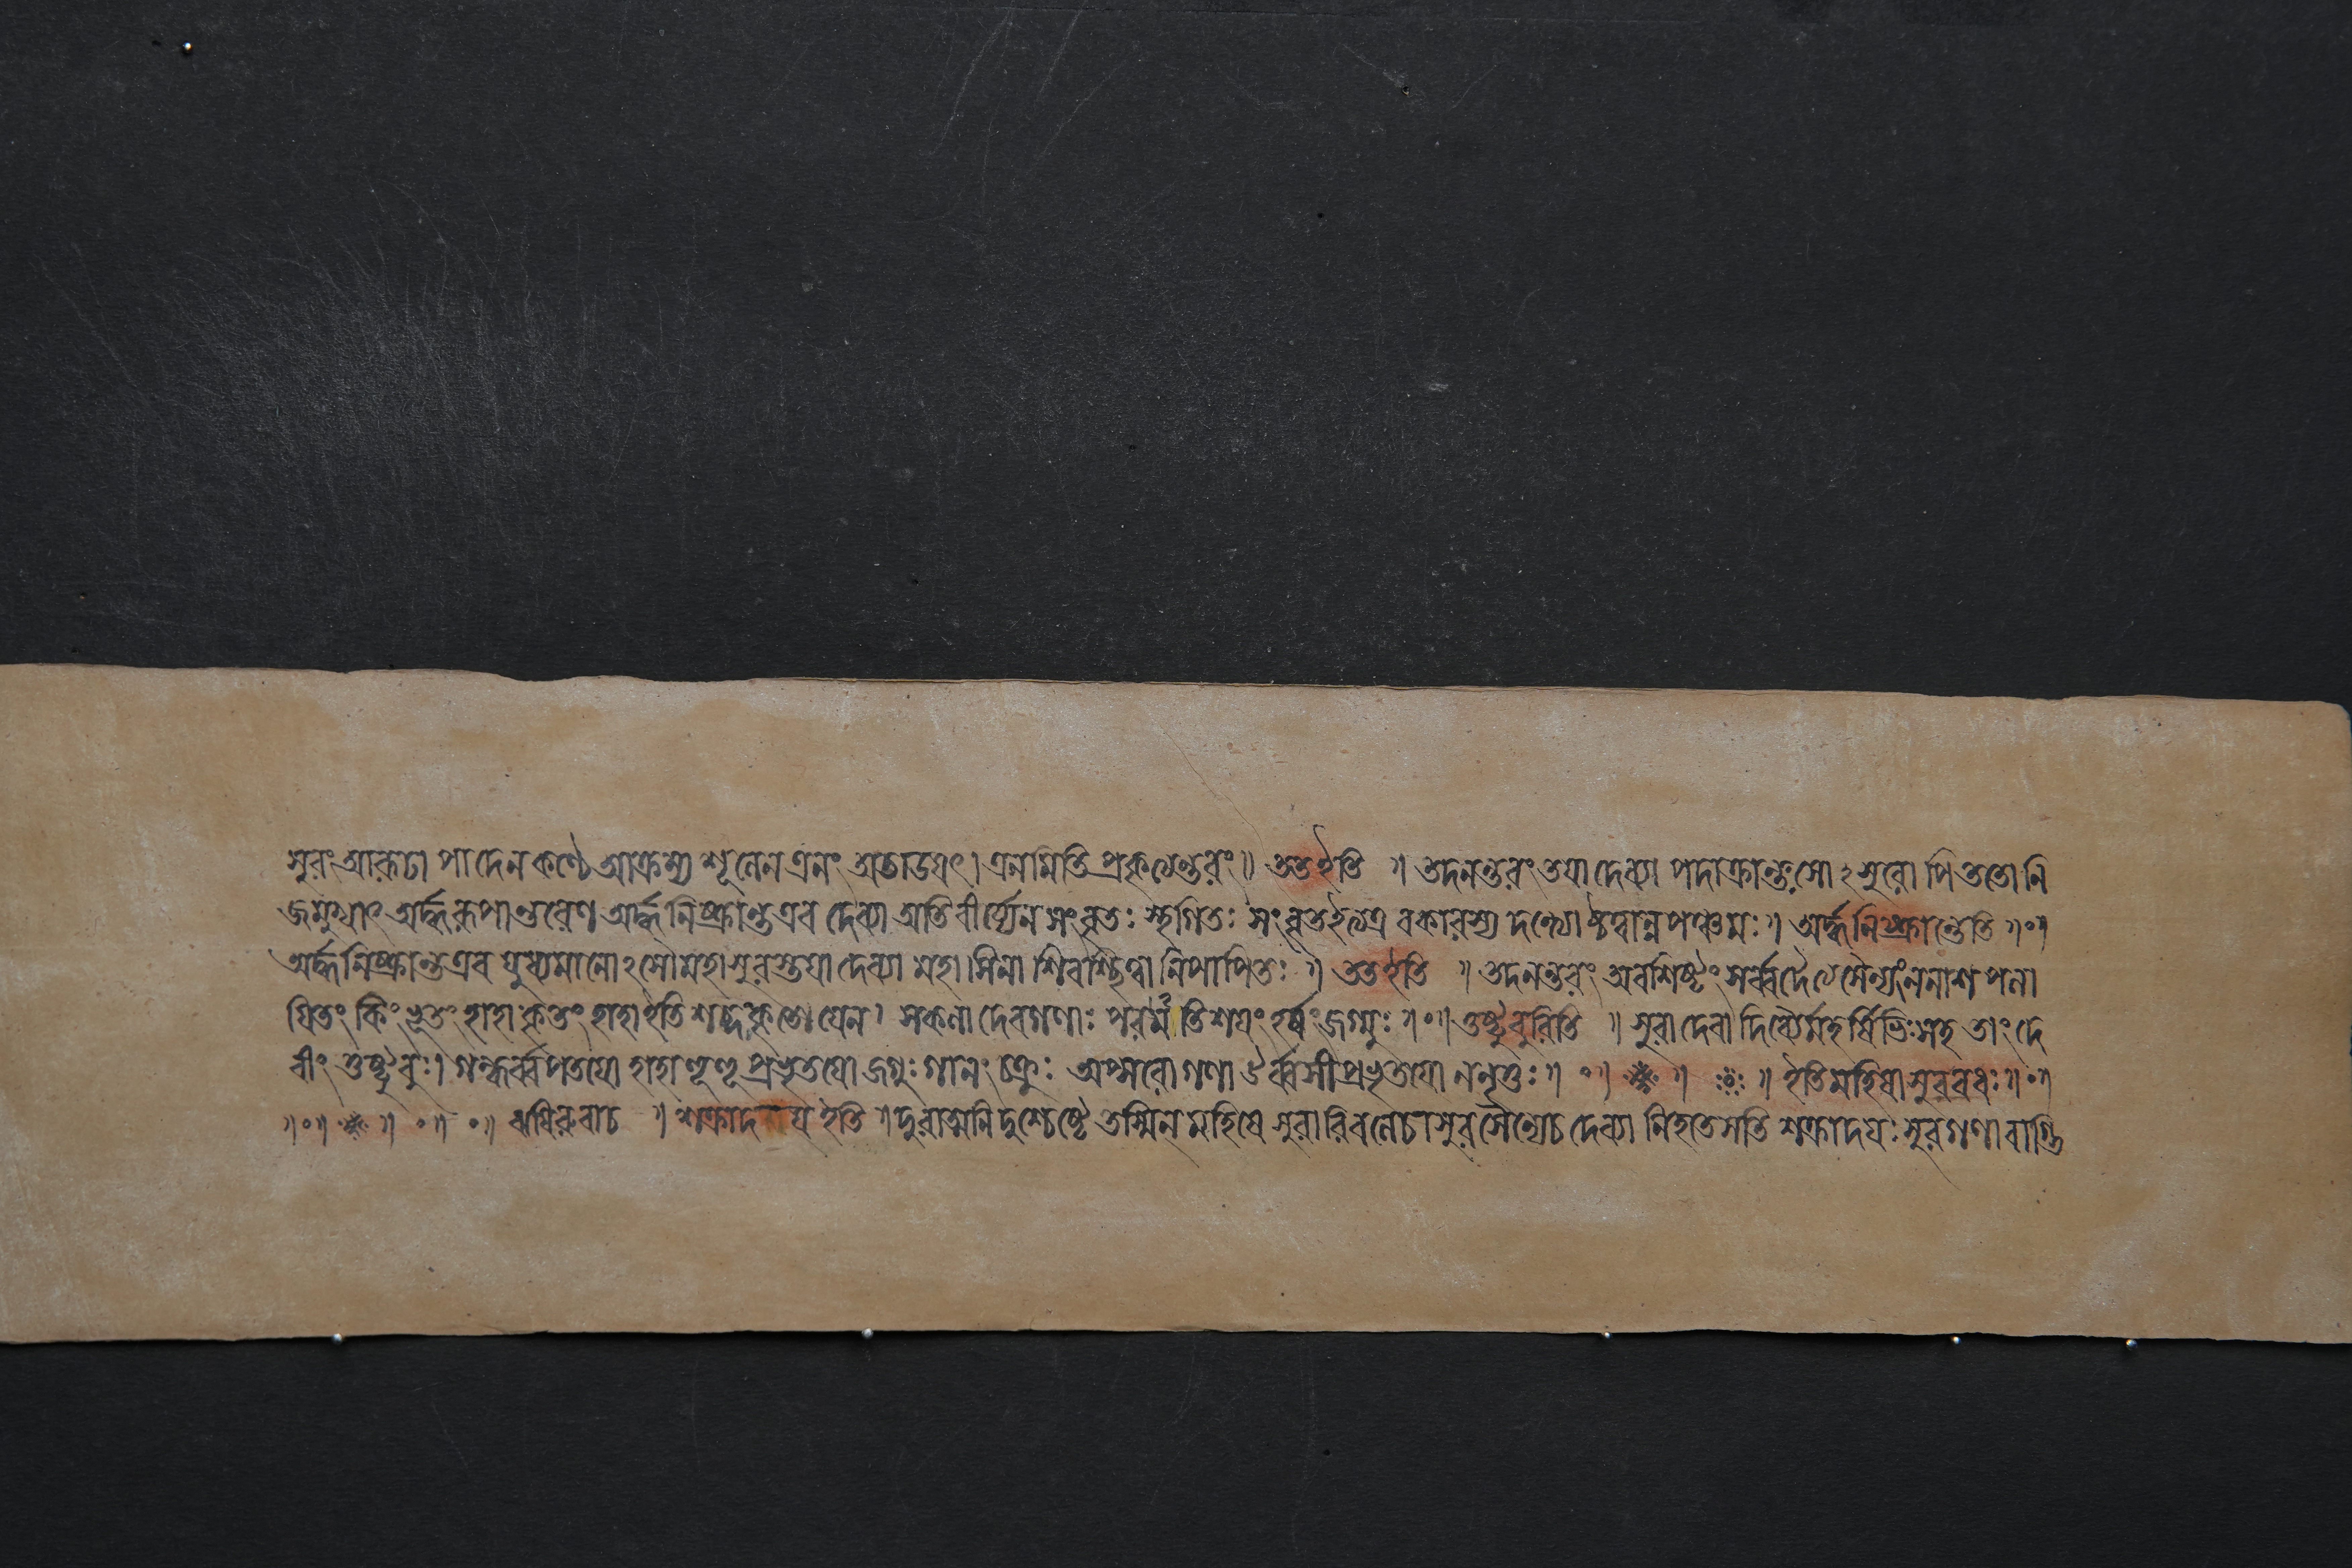 সুরং আরূঢা পাদেন কণ্ঠে আক্রম্য শূলেন এনং অতাডযৎ। এনমিতি প্রকৃত্যেন্তরং॥ তত ইতি ॥ তদনন্তরং তযা দেব্যা পদাক্রান্তঃ সোঽসুরো পি ততো নি
জমুখাৎ অর্দ্ধরূপান্তরেণ অর্দ্ধনিষ্ক্রান্ত এব দেব্যা অতিবীর্য্যেন সংবৃতঃ স্থগিতঃ সংবৃত ইত্যত্র বকারস্য দন্ত্যোষ্ঠত্বান্ন পঞ্চমঃ॥ অর্দ্ধনিষ্ক্রান্তেতি ॥०॥
অর্দ্ধনিষ্ক্রান্ত এব যুধ্যমানোঽসৌ মহাসুরস্তযা দেব্যা মহাসিনা শিরশ্ছিত্বা নিপাতিতঃ ॥ তত ইতি ॥ তদনন্তরং অবশিষ্টং সর্ব্বদৈত্যসৈন্যং ননাশ পলা
যিতং কিংভূতং হাহাকৃতং হাহা ইতি শব্দ কৃতো যেন। সকলা দেবগণাঃ পরমতিশযং হর্ষং জগ্মুঃ ॥०॥ তুষ্টুবুরিতি ॥ সুরা দেবা দিব্যৈর্মহর্ষিভিঃ সহ তাং দে
বীং তুষ্টুবুঃ। গন্ধর্ব্বপতযো হাহাহূহূপ্রভৃতযো জগুঃ গানং চক্রুঃ অপ্সরোগণা ঔর্ব্বসীপ্রভৃতযো ননৃতুঃ॥ ०॥ ॥ ॥ ইতি মহিষাসুরবধঃ॥०॥
॥०॥ ॥ ०॥ ०॥ ঋষিরুবাচ ॥ শক্রাদয ইতি ॥ দুরাত্মনি দুশ্চেষ্টে তস্মিন্ মহিষে সুরারিবলে চাসুরসৈন্যে চ দেব্যা নিহতে সতি শক্রাদযঃ সুরগণা বাগ্ভি